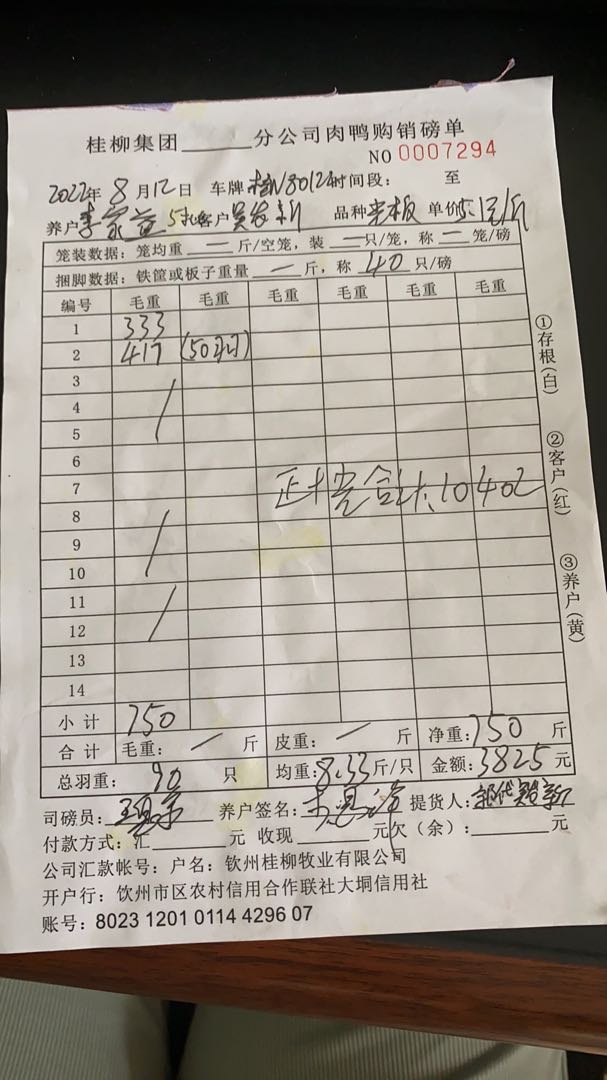 桂柳集团______分公司肉鸭购销磅单
NO 0007294
2022年8月12日 车牌 时间段: 至
养户 客户 品种 单价5.1元/斤
笼装数据：笼均重 一 斤/空笼，装 一 只/笼，称 一 笼/磅
捆脚数据：铁筐或板子重量 一 斤，称 40 只/磅
编号 毛重 毛重 毛重 毛重 毛重 毛重
1 333
2 417 (50羽)
3
4
5
6
7
8
9
10
11
12
13
14
10402
小计 750
合计 毛重： / 斤 皮重： / 斤 净重：750 斤
总羽重： 90 只 均重：8.33斤/只 金额：3825元
司磅员： 养户签名： 提货人：
付款方式：汇______元 收现______元欠（余）：______元
公司汇款帐号：户名：钦州桂柳牧业有限公司
开户行：饮州市区农村信用合作联社大垌信用社
账号：8023 1201 0114 4296 07
①存根(白)
②客户(红)
③养户(黄)